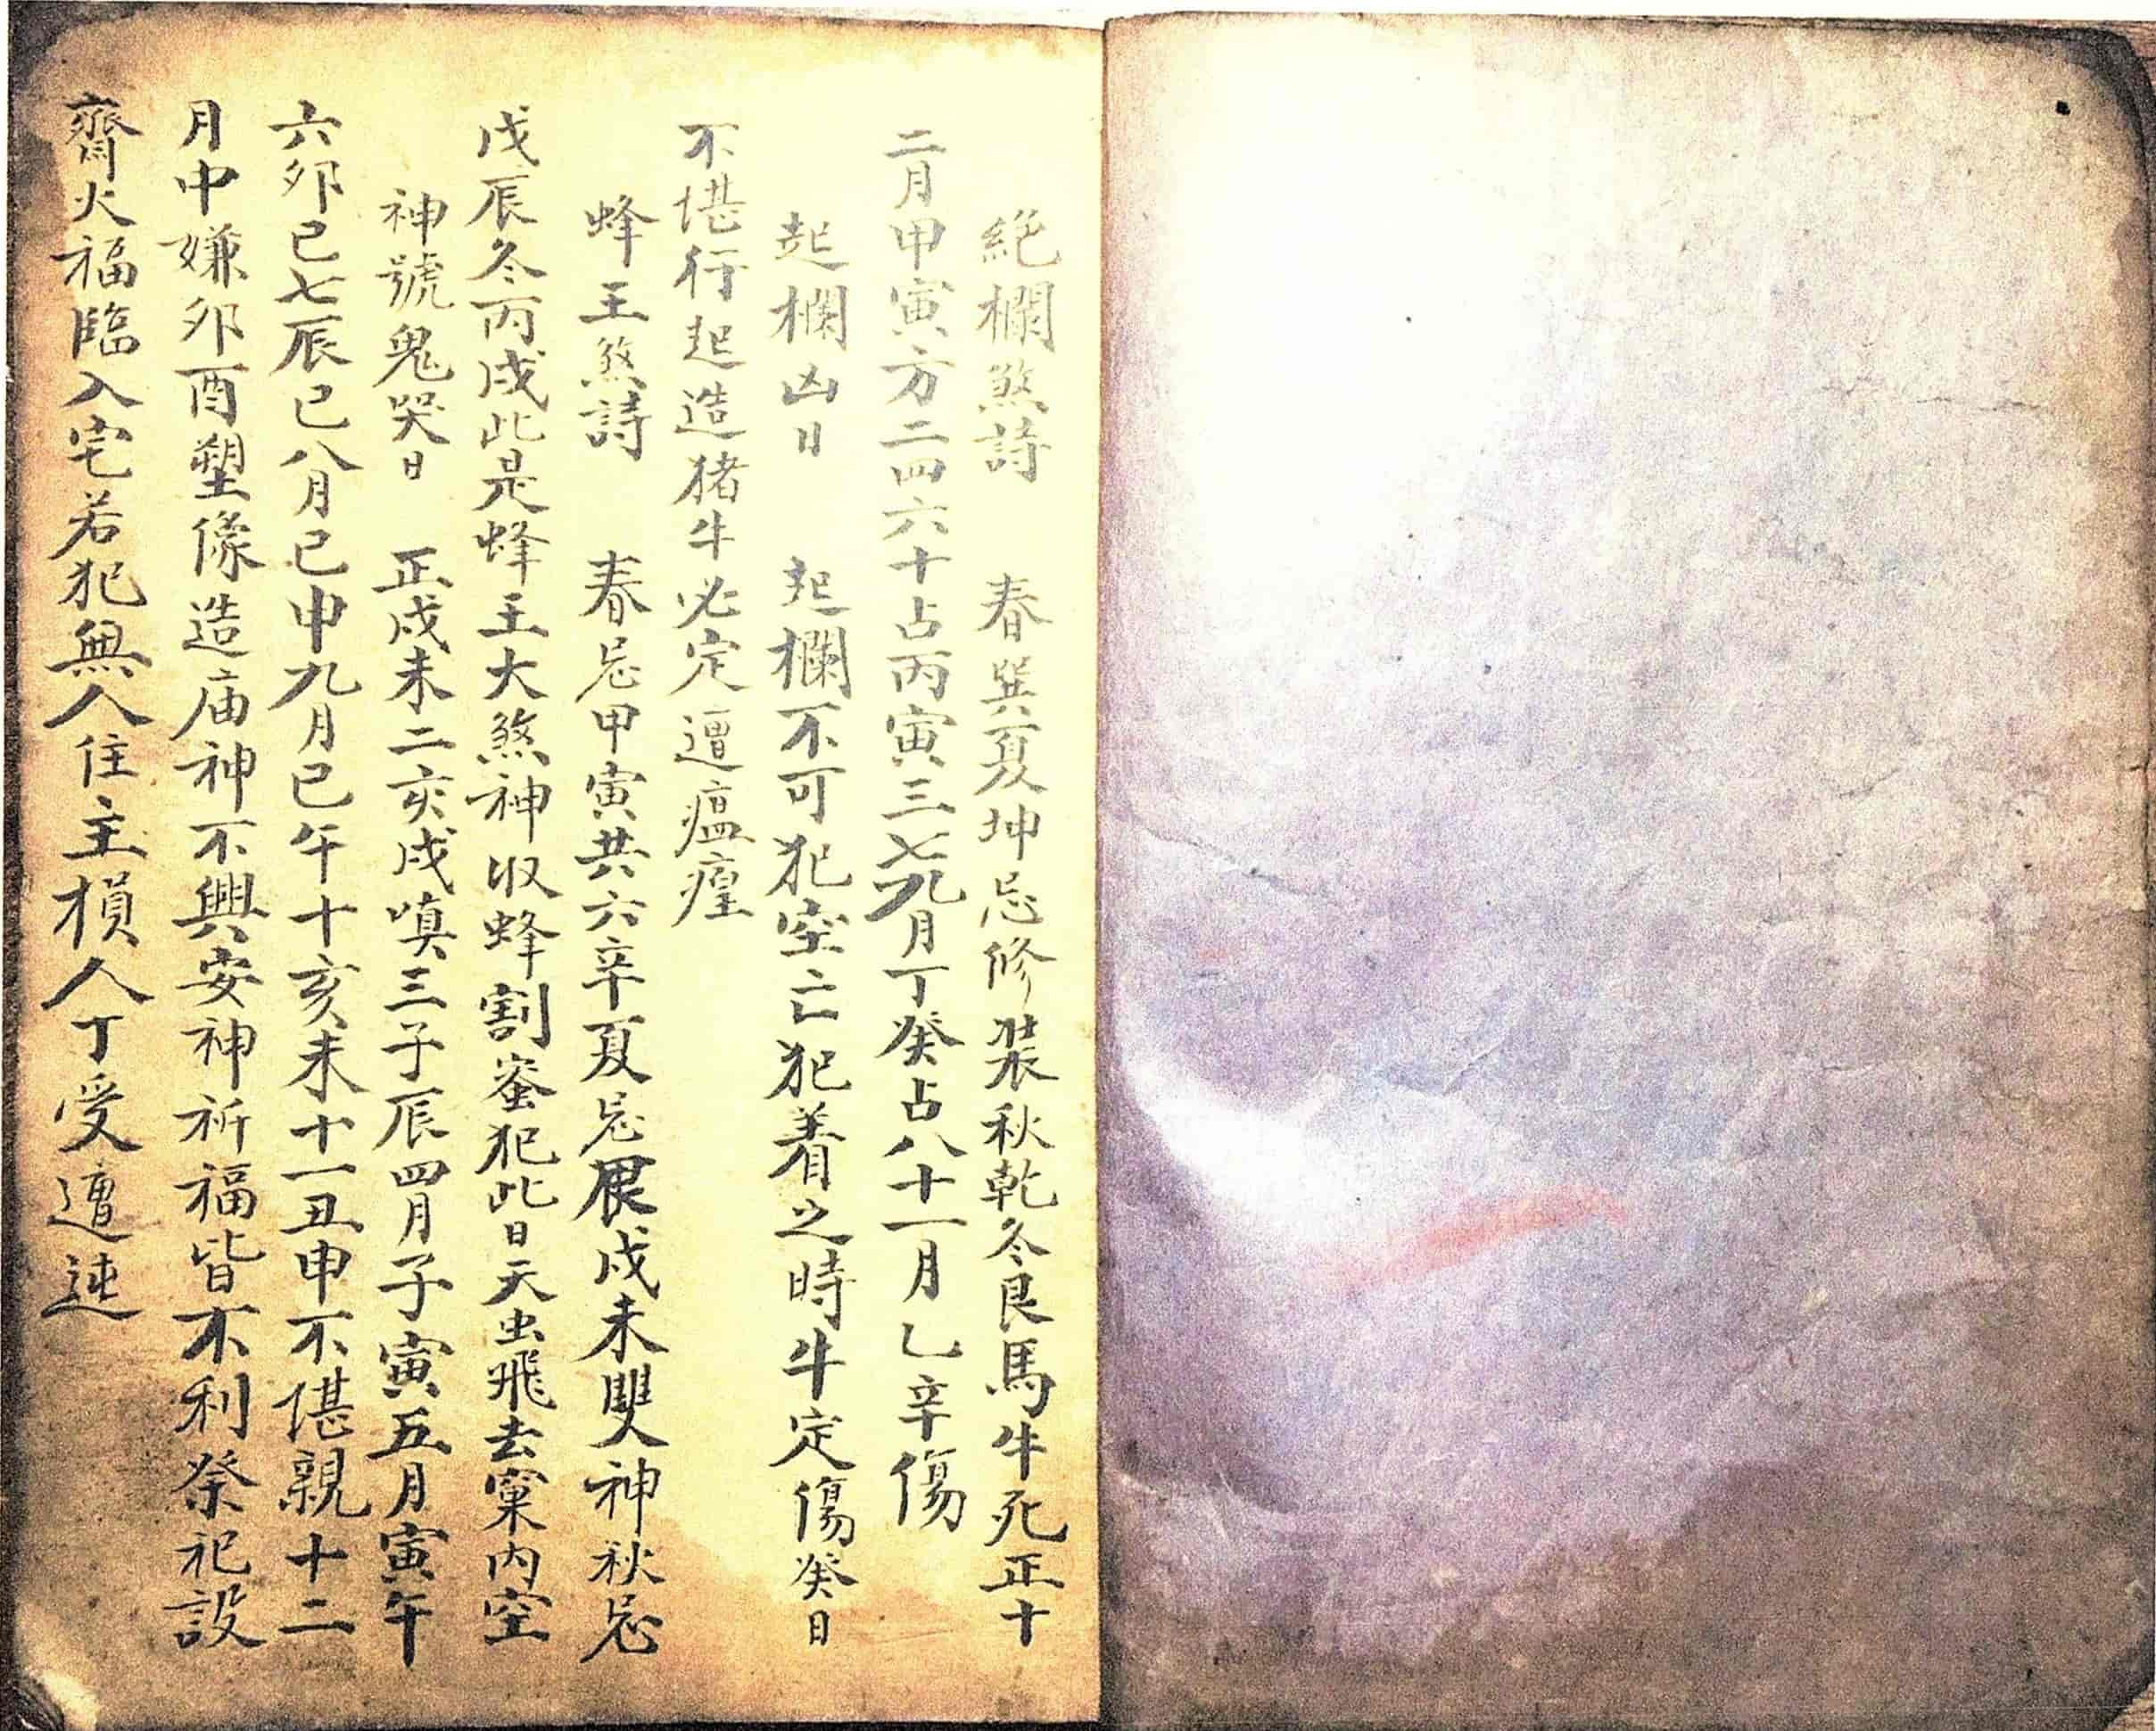 絶欄煞詩　春巽夏坤忌修裝秋乾冬艮馬牛死正十
二月甲寅方二四六十占丙寅三七九月丁癸占八十一月乙辛傷
起欄凶日　起欄不可犯空亡犯着之時牛定傷癸日
不堪行起造猪牛必定遭瘟瘽
蜂王煞詩　春忌甲寅共六辛夏忌戊未雙神秋忌
戊辰冬丙戌此是蜂王大煞神収蜂割蜜犯此日天虫飛去窠内空
神號鬼哭日　正戌未二亥戌嗔三子辰四月子寅五月寅午
六卯巳七辰巳八月巳申九月巳午十亥未十一丑申不堪親十二
月中嫌卯酉塑像造庙神不興安神祈福皆不利祭祀設
齋火福臨入宅若犯無人住主損人丁受遭迍